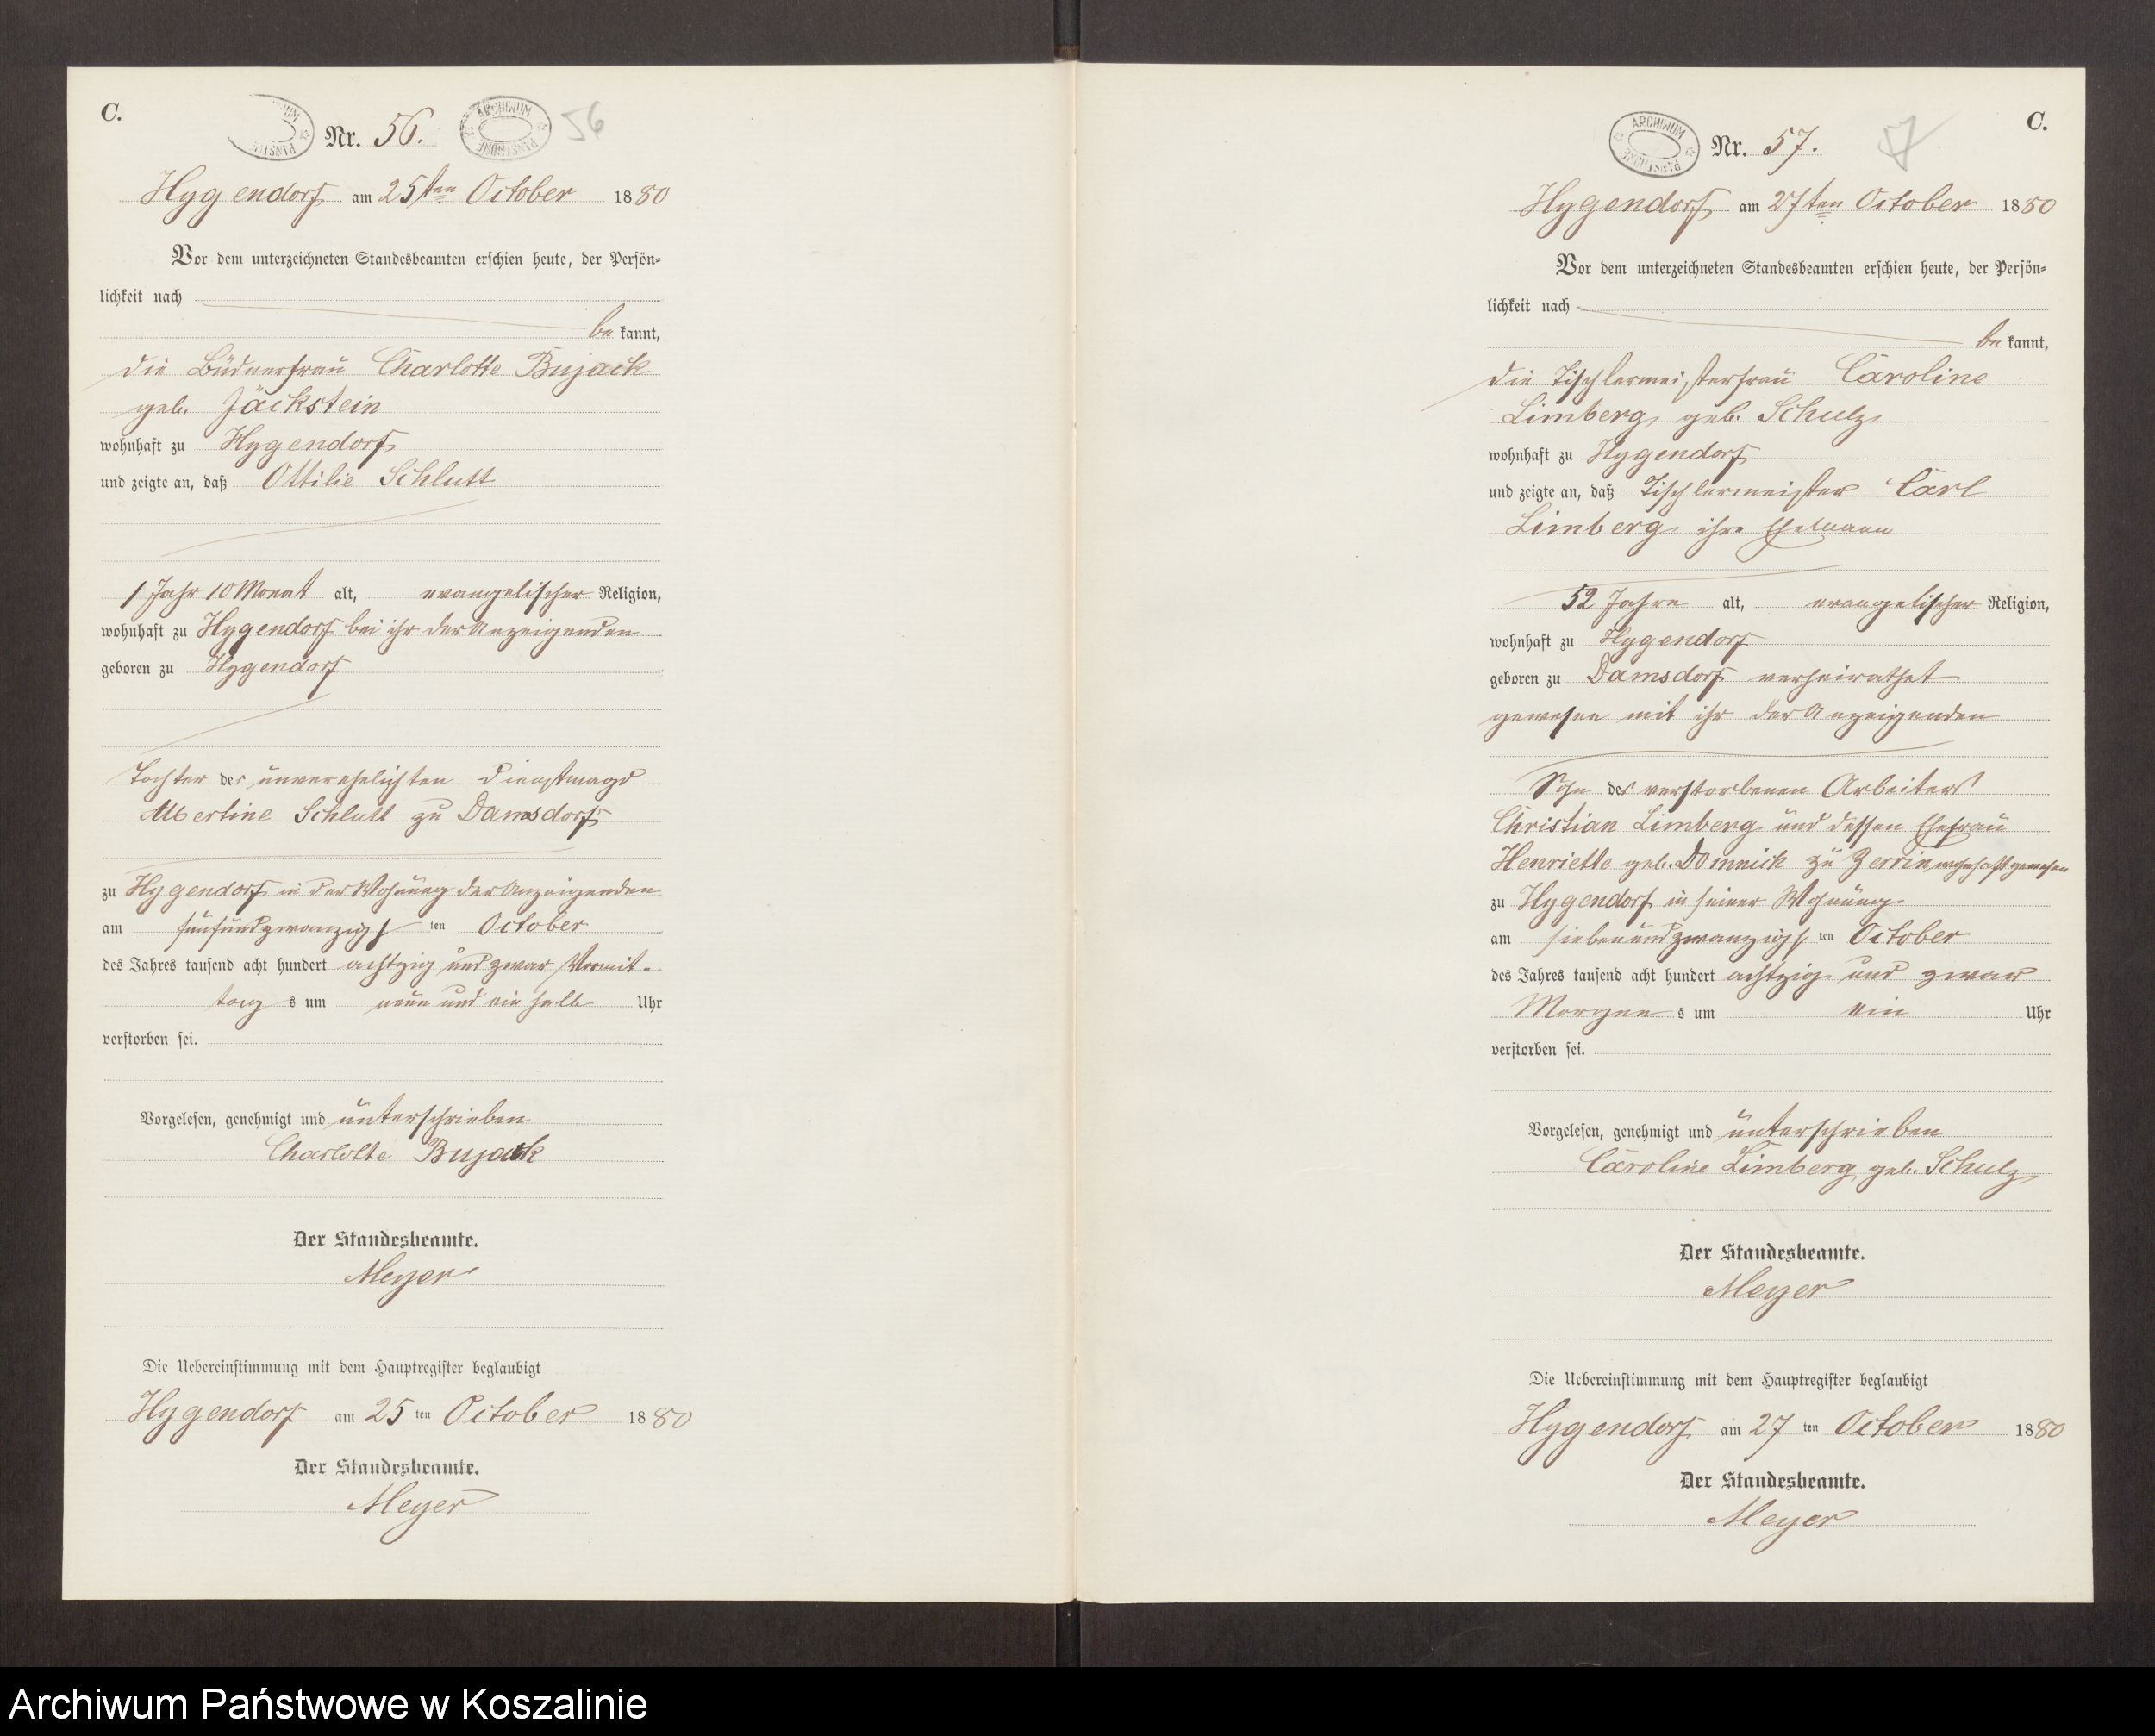 C.
Nr. 56.
56
Hygendorf am 25ten October 1880
Vor dem unterzeichneten Standesbeamten erschien heute, der Persön-
lichkeit nach
be kannt,
die Büdnerfrau Charlotte Bujack
geb. Jäckstein
wohnhaft zu Hygendorf
und zeigte an, daß Ottilie Schlutt
1 Jahr 10 Monat alt, evangelischer Religion,
wohnhaft zu Hygendorf bei ihr der Anzeigenden
geboren zu Hygendorf
Tochter der unverehelichten Dienstmagd
Albertine Schlutt zu Damsdorf
zu Hygendorf in der Wohnung der Anzeigenden
am fünfundzwanzigs ten October
des Jahres tausend acht hundert achtzig und zwar Vormit-
tag s um neun und ein halb Uhr
verstorben sei.
Vorgelesen, genehmigt und unterschrieben
Charlotte Bujack
Der Standesbeamte.
Meyer
Die Uebereinstimmung mit dem Hauptregister beglaubigt
Hygendorf am 25 ten October 1880
Der Standesbeamte.
Meyer
C.
ARCHIWUM
Nr. 57.
57
Hygendorf am 27ten October 1880
Vor dem unterzeichneten Standesbeamten erschien heute, der Persön-
lichkeit nach
be kannt,
die Tischlermeisterfrau Caroline
Limberg, geb. Schulz
wohnhaft zu Hygendorf
und zeigte an, daß Tischlermeister Carl
Limberg ihr Ehemann
52 Jahre alt, evangelischer Religion,
wohnhaft zu Hygendorf
geboren zu Damsdorf verheirathet
gewesen mit ihr der Anzeigenden
Sohn des verstorbenen Arbeiters
Christian Limberg und dessen Ehefrau
Henriette geb. Domnick zu Zerrin wohnhaft gewesen
zu Hygendorf in seiner Wohnung
am siebenundzwanzigs ten October
des Jahres tausend acht hundert achtzig und zwar
Morgen s um ein Uhr
verstorben sei.
Vorgelesen, genehmigt und unterschrieben
Caroline Limberg, geb. Schulz
Der Standesbeamte.
Meyer
Die Uebereinstimmung mit dem Hauptregister beglaubigt
Hygendorf am 27 ten October 1880
Der Standesbeamte.
Meyer
Archiwum Państwowe w Koszalinie